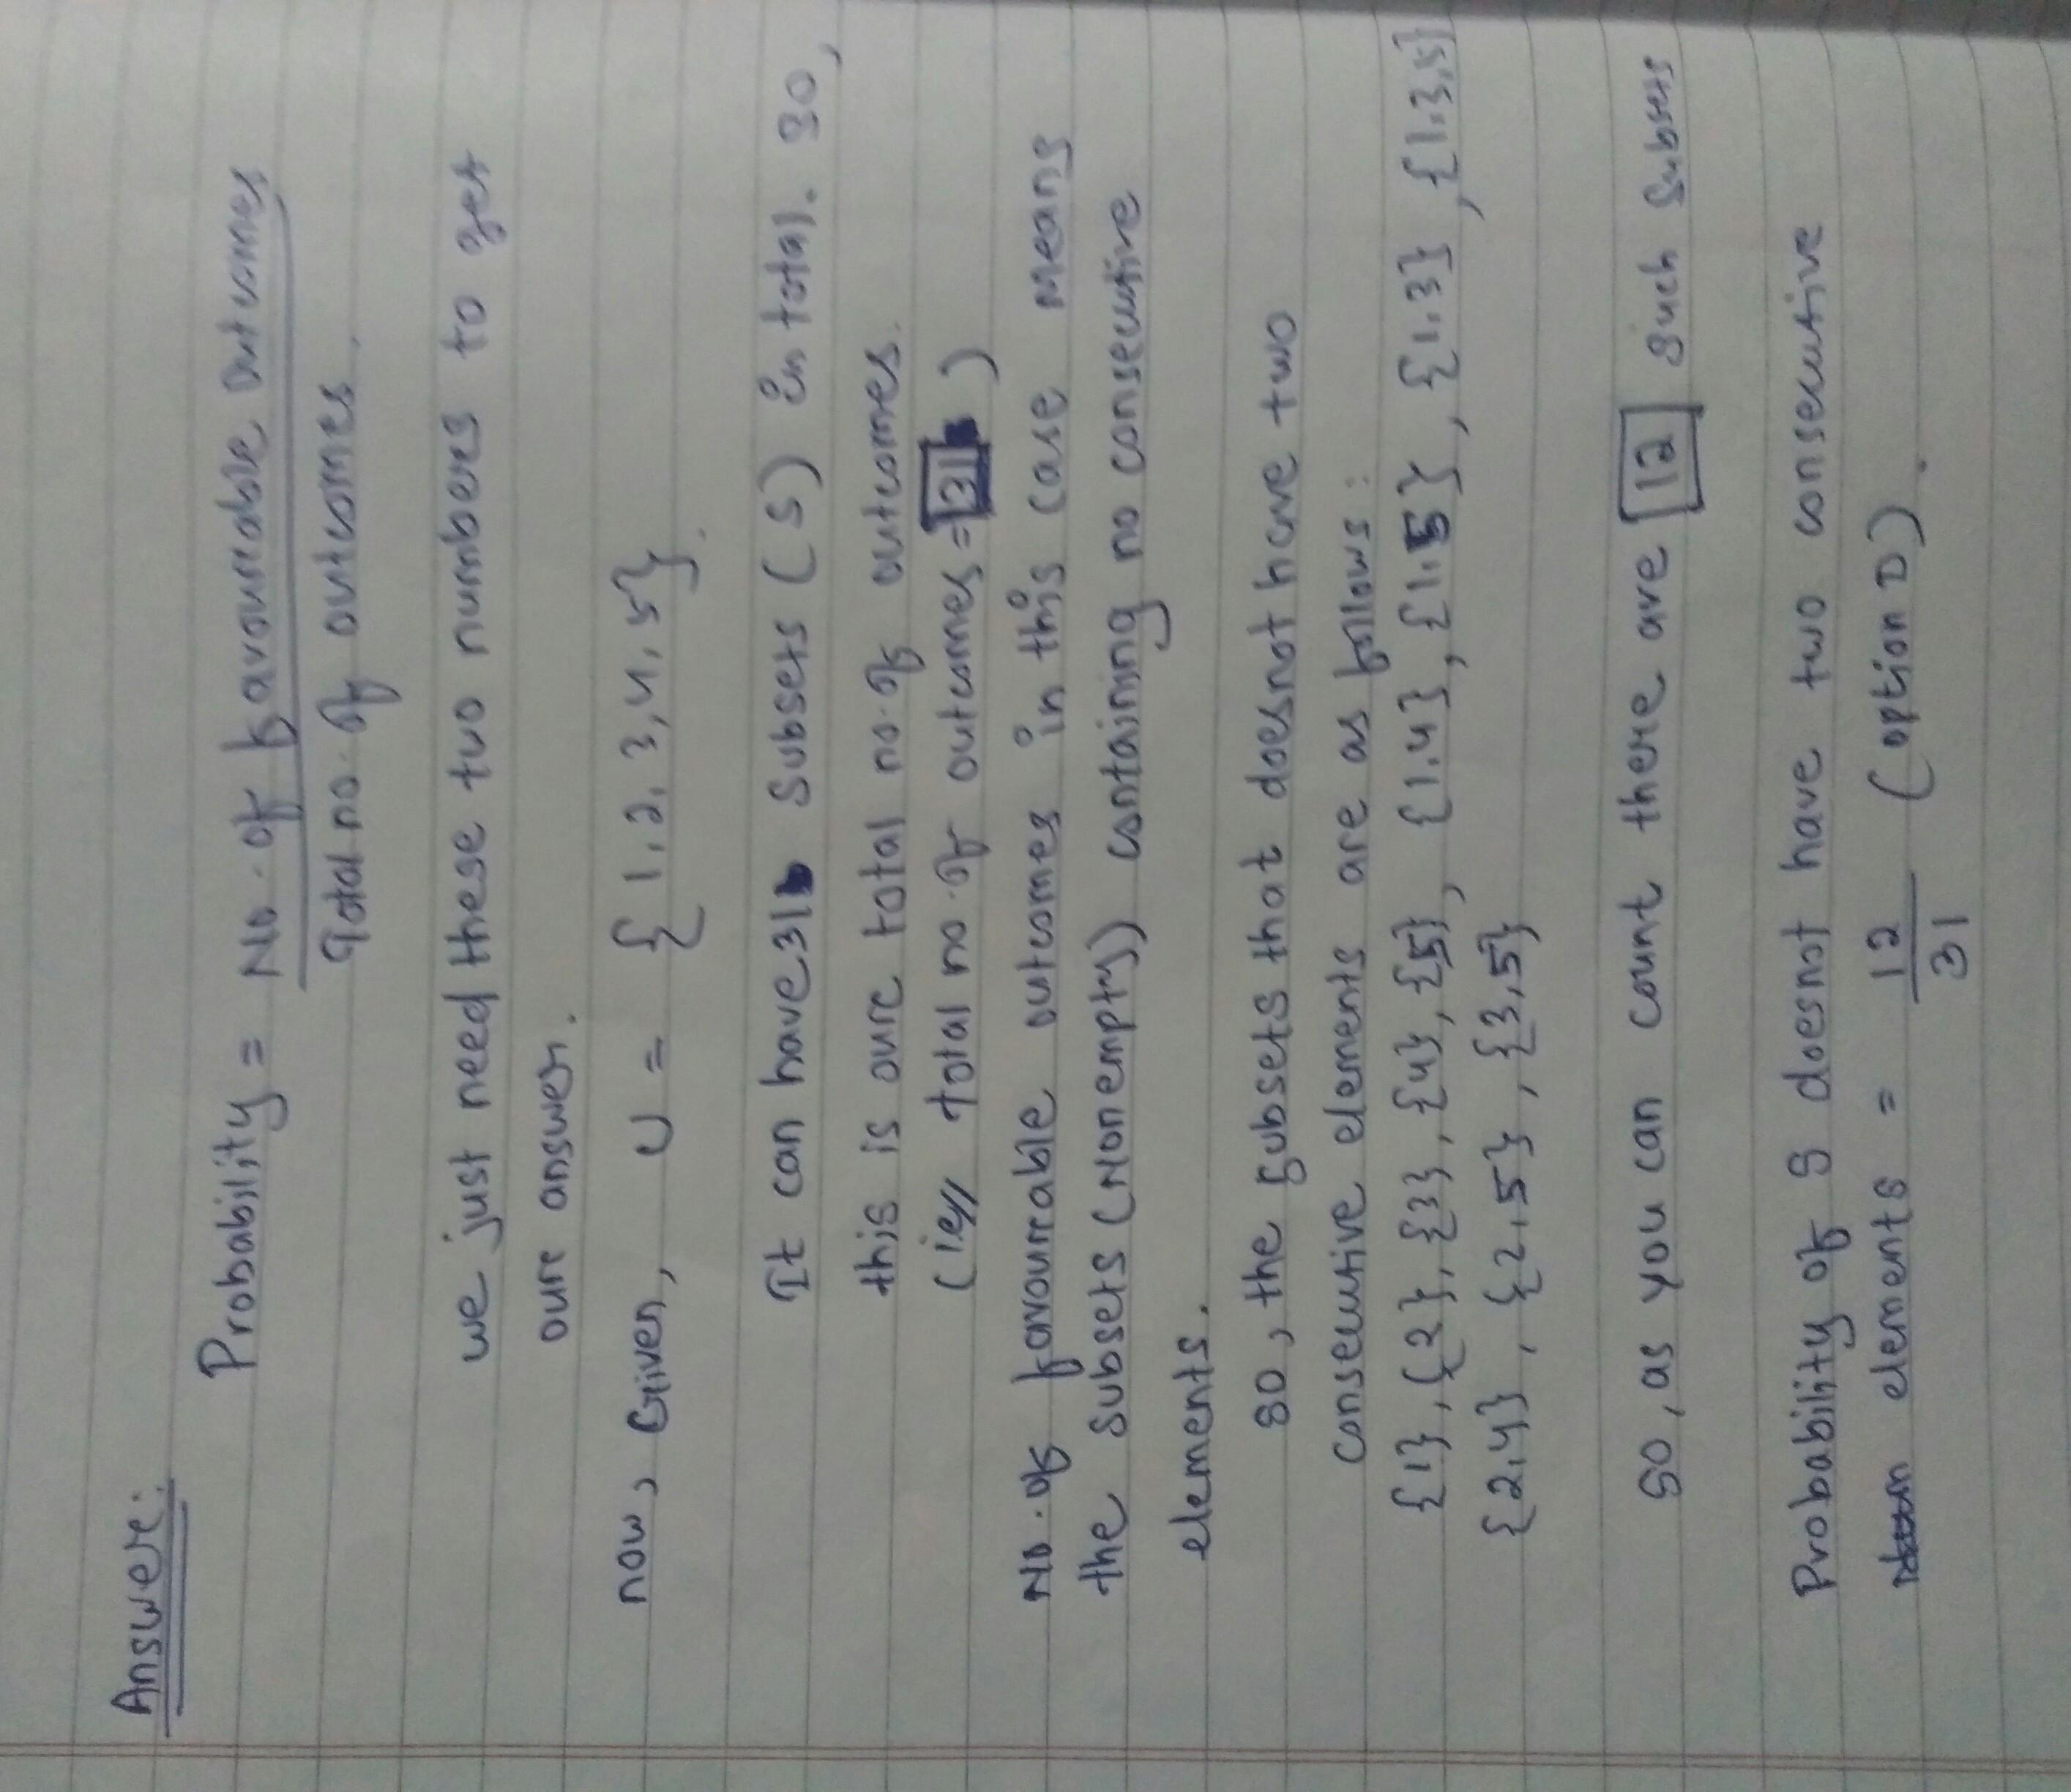 Answer:
Probability = No. of favourable outcomes
Total no. of outcomes.
we just need these two numbers to get
our answer.
now, Given, U = {1, 2, 3, 4, 5}.
It can have 31 subsets (S) in total. So,
this is our total no. of outcomes.
(ie// total no. of outcomes = 31 )
No. of favourable outcomes in this case means
the subsets (Nonempty) containing no consecutive
elements.
so, the subsets that doesnot have two
consecutive elements are as follows:
{1}, {2}, {3}, {4}, {5}, {1,4}, {1,5}, {1,3}, {1,3,5}
{2,4}, {2,5}, {3,5}
So, as you can count there are 12 such subsets
Probability of S doesnot have two consecutive
elements = 12/31 (option D).